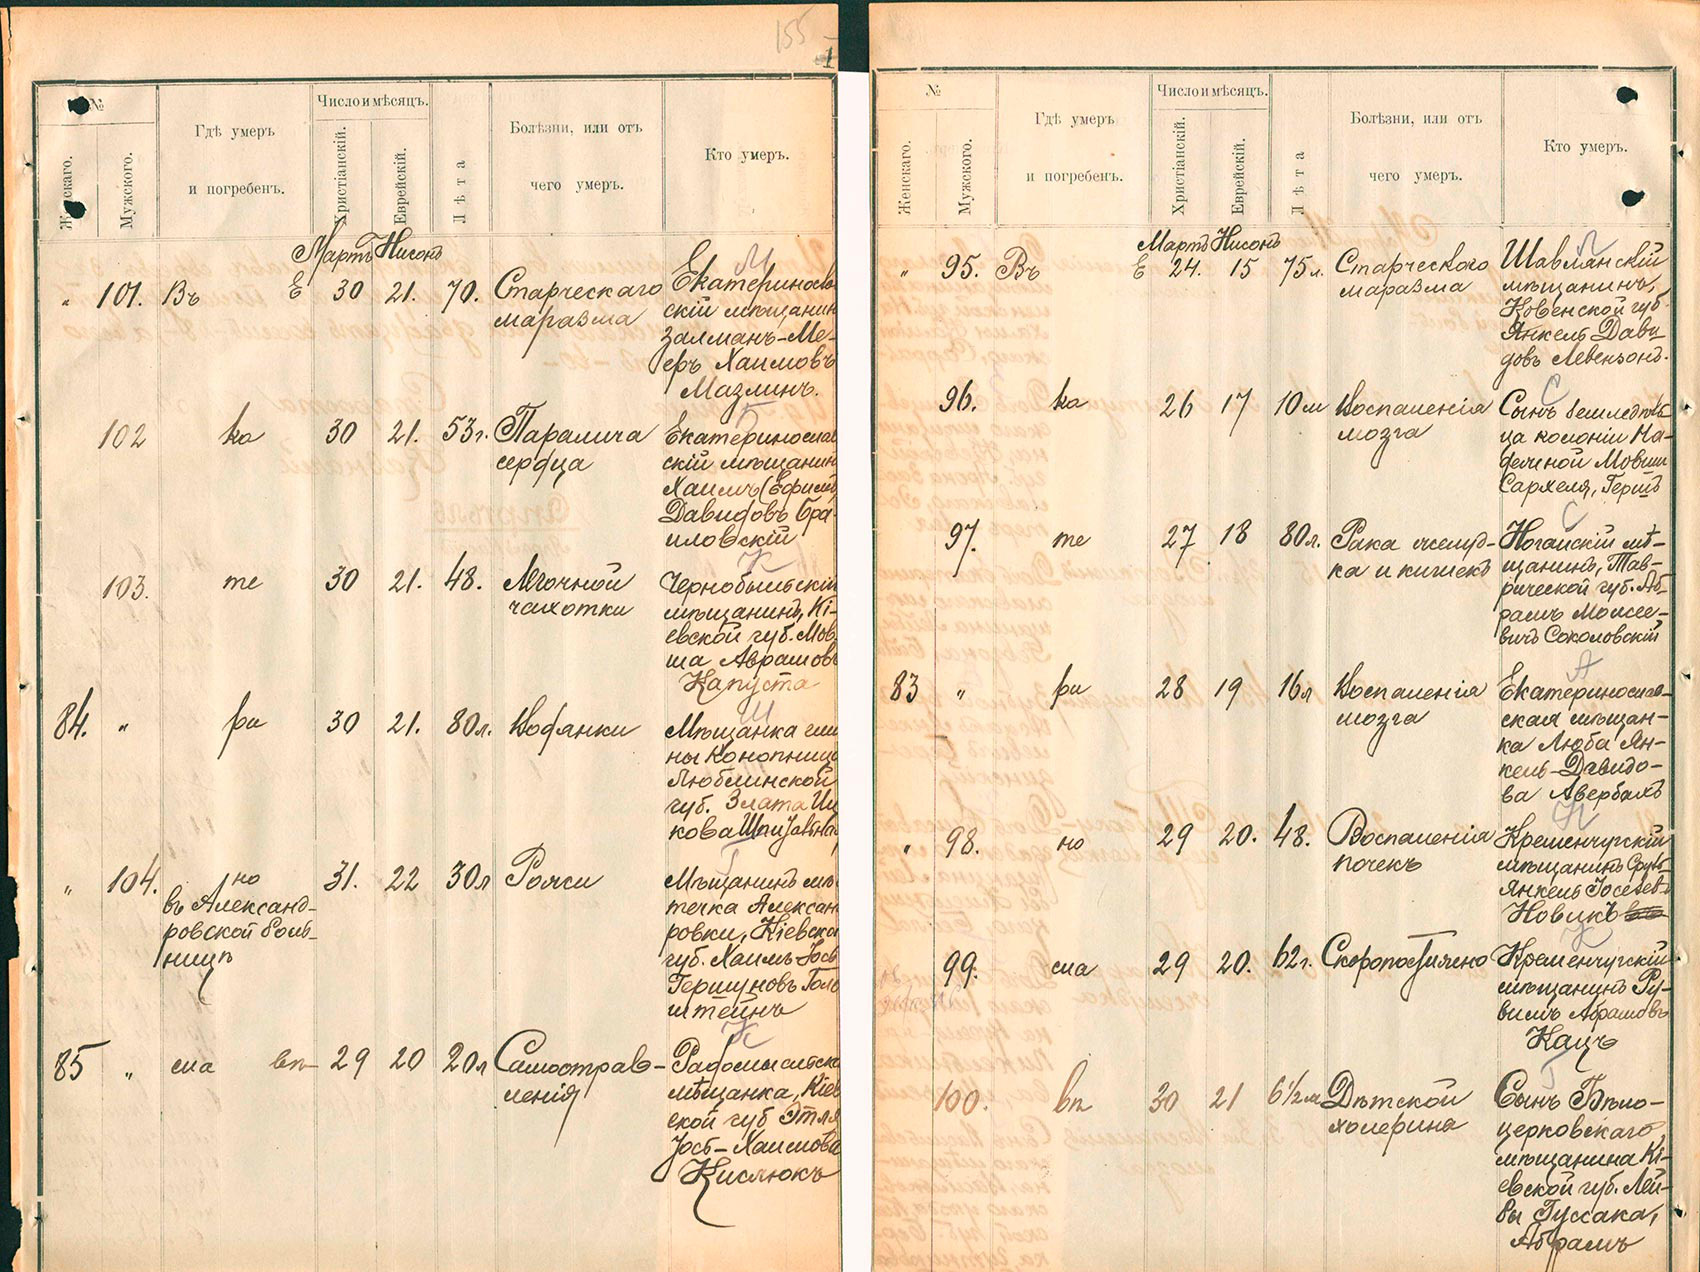 155
1
№
Женскаго.
Мужского.
Гдѣ умеръ
и погребенъ.
Число и мѣсяцъ.
Христіанскій.
Еврейскій.
Лѣта
Болѣзни, или отъ
чего умеръ.
Кто умеръ.
Мартъ Нисонъ
М
„ 101. Въ Е 30 21. 70. Старческаго Екатеринослав
маразма скій мѣщанин
Залманъ-Ме-
еръ Хаимовъ
Мазлинъ.
Б
102 ка 30 21. 53г. Паралича Екатеринослав
сердца скій мѣщанин
Хаимъ (Ефимъ)
Давидовъ Бра-
иловскій
К
103. те 30 21. 48. Легочной Чернобыльскій
чахотки мѣщанинъ, Кі-
евской губ. Мов
ша Аврамовъ
Капуста
Ш
84. „ ри 30 21. 80л. Водянки Мѣщанка гми
ны Конопница
Люблинской
губ. Злата Иц
кова
Г
„ 104. но 31. 22 30л Рожи Мѣщанинъ мѣ
въ Александ- течка Алексан
ровской боль- ровки, Кіевско
ницѣ губ. Хаимъ Іось
Гершуновъ Голь
штейнъ
К
85 „ сла вѣ 29 20 20л Самоотрав- Радомысльска
ленія мѣщанка, Кіев
ской губ Этля
Іось-Хаимова
Кислюкъ
№
Женскаго.
Мужского.
Гдѣ умеръ
и погребенъ.
Число и мѣсяцъ.
Христіанскій.
Еврейскій.
Лѣта
Болѣзни, или отъ
чего умеръ.
Кто умеръ.
Мартъ Нисонъ
Л
„ 95. Въ Е 24. 15 75л. Старческого Шавлянскій
маразма мѣщанинъ,
Ковенской губ.
Янкель Дави-
довъ Левенсонъ.
С
96. ка 26 17 10м Воспаленія Сынъ земледѣль
мозга ца колоніи На-
дечной Мовши
Сархеля, Гершъ
С
97. те 27 18 80л. Рака желуд- Ногайскій мѣ-
ка и кишекъ щанинъ, Тав-
рической губ. Аб-
рамъ Моисее-
вичъ Соколовскій
А
83 „ ри 28 19 16л Воспаленія Екатеринослав-
мозга ская мѣщан-
ка Люба Ян-
кель-Давидо-
ва Авербахъ
Н
„ 98. но 29 20. 48. Воспаленія Кременчугскій
почекъ мѣщанинъ Сруль-
Янкель Іосевъ
Новикъ
К
99. сла 29 20. 62г. Скоропостижно Кременчугскій
мѣщанинъ Ру-
вимъ Абрамовъ
Кацъ
Г
100. вѣ 30 21 6½м Дѣтской Сынъ Бѣло-
холерина церковскаго
мѣщанина Кі-
евской губ. Лей-
бы Гуссака,
Абрамъ